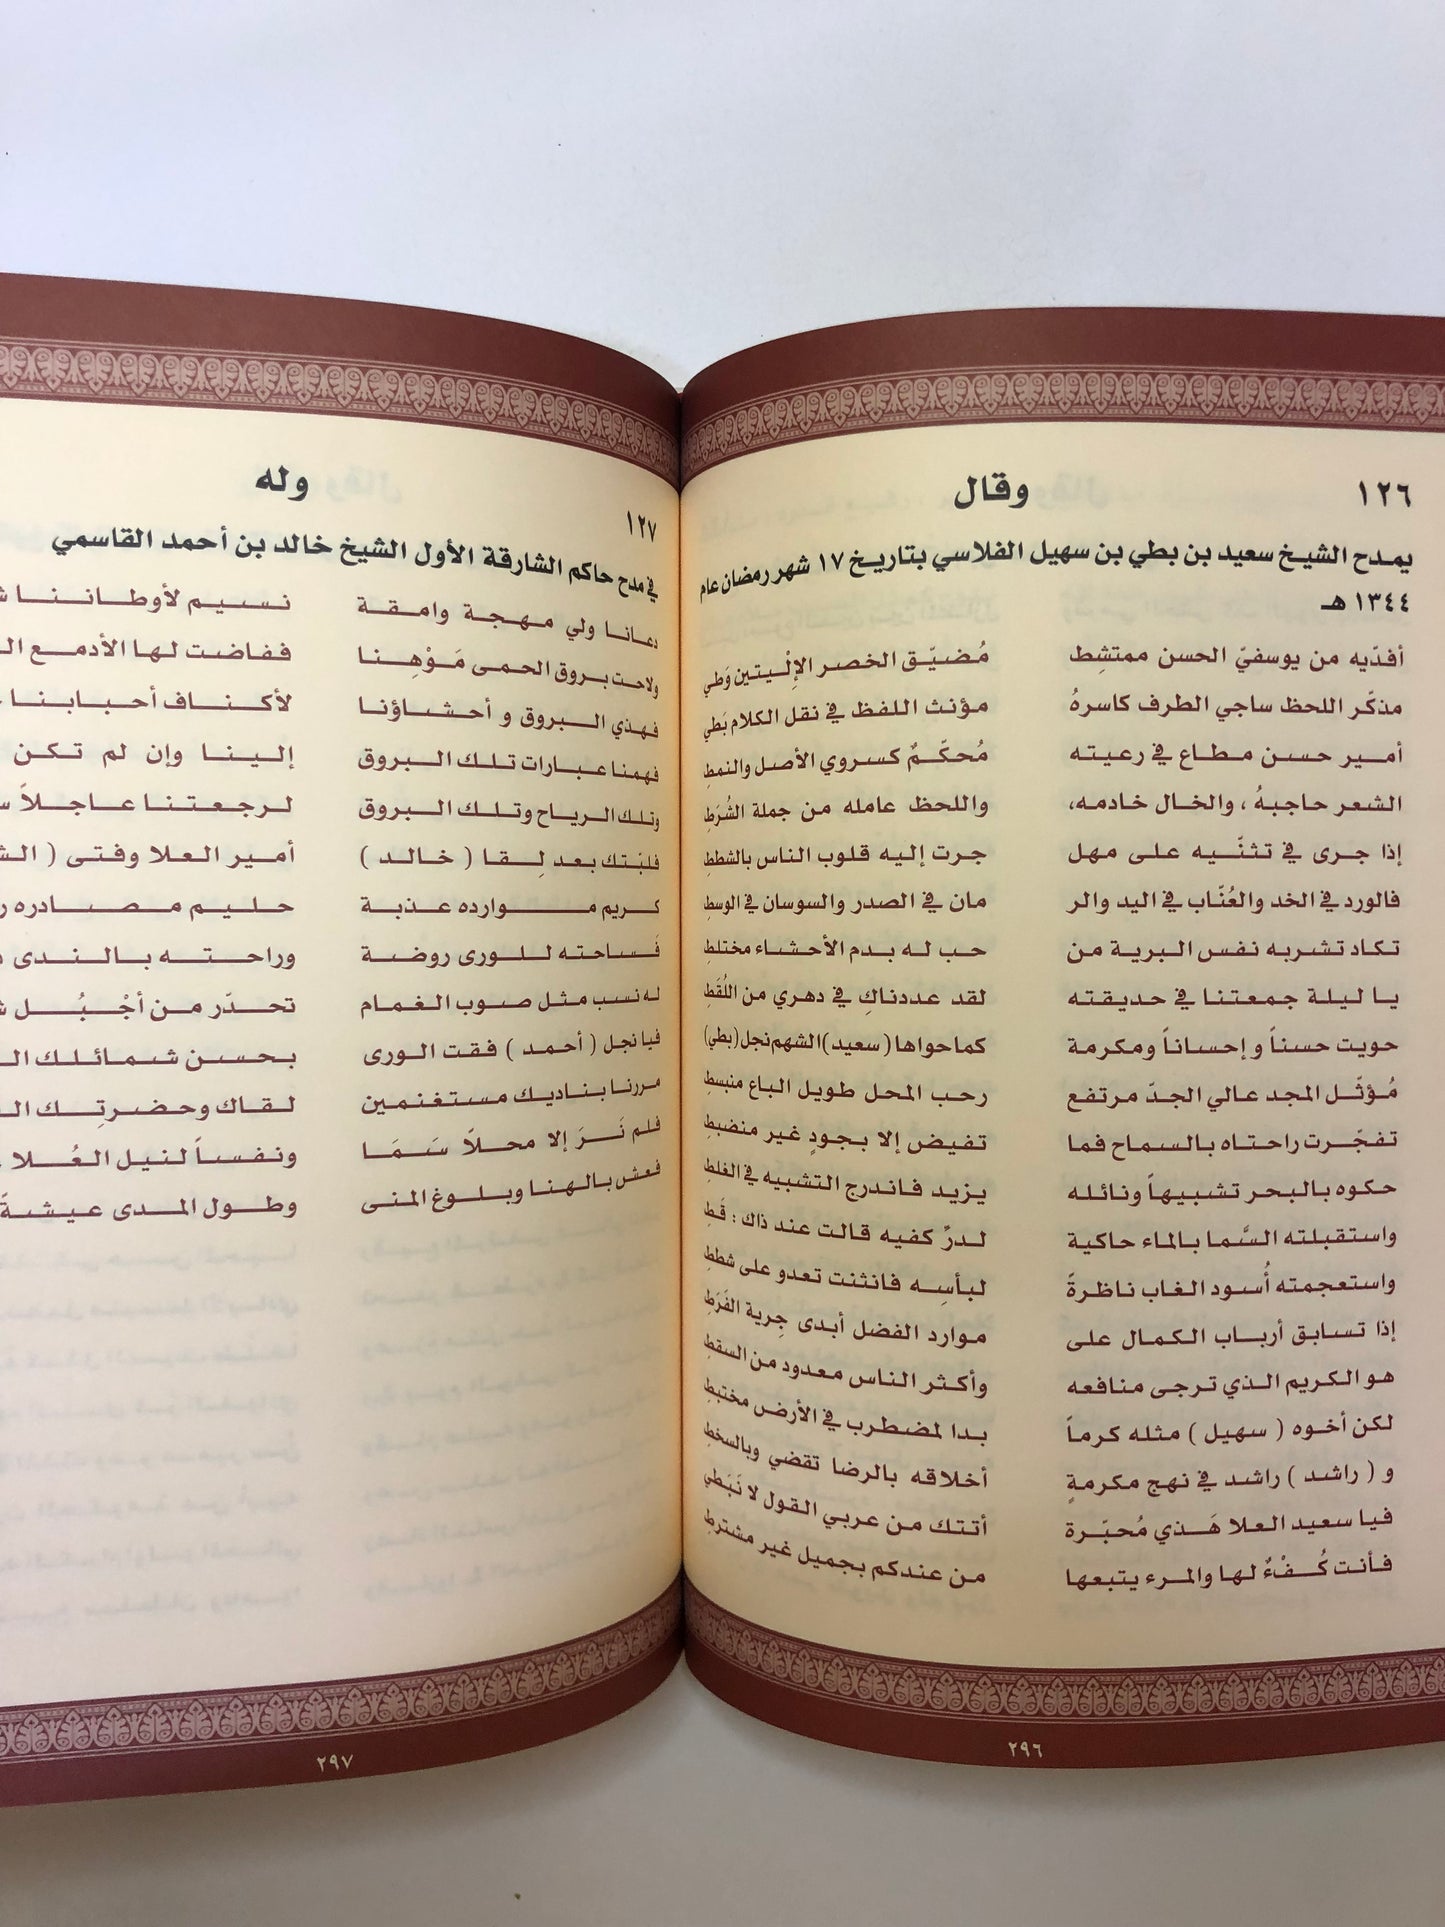 ١٢٦
وقال
يمدح الشيخ سعيد بن بطي بن سهيل الفلاسي بتاريخ ١٧ شهر رمضان عام
١٣٤٤ هـ
أفدّيه من يوسفيّ الحسن ممتشِط مُضيّق الخصر الإِلْيتين وَطي
مذكّر اللحظ ساجي الطرف كاسرهُ مؤنث اللفظ في نقل الكلام بَطي
أمير حسن مطاع في رعيته مُحكّمٌ كسروي الأصل والنمطِ
الشعر حاجبهُ ، والخال خادمه، واللحظ عامله من جملة الشُرَطِ
إذا جرى في تثنّيه على مهل جرت إليه قلوب الناس بالشططِ
فالورد في الخد والعُنّاب في اليد والر مان في الصدر والسوسان في الوسطِ
تكاد تشربه نفس البرية من حب له بدم الأحشاء مختلطِ
يا ليلة جمعتنا في حديقته لقد عددناكِ في دهري من اللُقَطِ
حويت حسناً و إحساناً ومكرمة كما حواها ( سعيد ) الشهم نجل (بطي)
مُؤثّل المجد عالي الجدّ مرتفع رحب المحل طويل الباع منبسطِ
تفجّرت راحتاه بالسماح فما تفيض إلا بجودٍ غير منضبطِ
حكوه بالبحر تشبيهاً ونائله يزيد فاندرج التشبيه في الغلطِ
واستقبلته السَّما بالماء حاكية لدرِّ كفيه قالت عند ذاك : قَطِ
واستعجمته أُسود الغاب ناظرةً لبأسِه فانثنت تعدو على شططِ
إذا تسابق أرباب الكمال على موارد الفضل أبدى جِرية الفَرَطِ
هو الكريم الذي ترجى منافعه وأكثر الناس معدود من السقطِ
لكن أخوه ( سهيل ) مثله كرماً بدا لمضطرب في الأرض مختبطِ
و ( راشد ) راشد في نهج مكرمةٍ أخلاقه بالرضا تقضي وبالسخطِ
فيا سعيد العلا هَذي مُحبّرة أتتك من عربي القول لا نَبَطي
فأنت كُفْءٌ لها والمرء يتبعها من عندكم بجميل غير مشترطِ
٢٩٦
١٢٧
وله
في مدح حاكم الشارقة الأول الشيخ خالد بن أحمد القاسمي
دعانا ولي مهجة وامقة نسيم لأوطاننا
ولاحت بروق الحمى مَوْهِنا ففاضت لها الأدمع
فهذي البروق و أحشاؤنا لأكناف أحبابنا
فهمنا عبارات تلك البروق إلينا وإن لم تكن
وتلك الرياح وتلك البروق لرجعتنا عاجلاً
فلبّتك بعد لِقا ( خالد ) أمير العلا وفتى (
كريم موارده عذبة حليم مصادره
فَساحته للورى روضة وراحته بالندى
له نسب مثل صوب الغمام تحدّر من أجْبُل
فيا نجل ( أحمد ) فقت الورى بحسن شمائلك
مررنا بناديك مستغنمين لقاك وحضرتِك
فلم نَرَ إلا محلاً سَمَا ونفساً لنيل العُلا
فعش بالهنا وبلوغ المنى وطول المدى عيشةً
٢٩٧